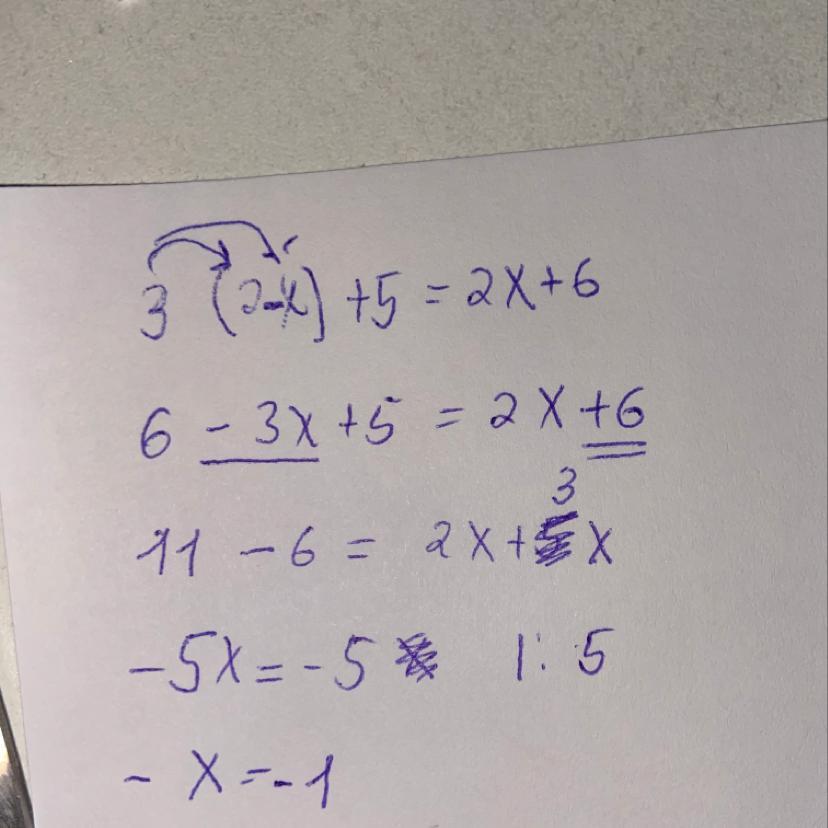 3 (2-x) +5 = 2x+6
6 - 3x +5 = 2x +6
11 - 6 = 2x+3x
-5x = -5 |: 5
- x = -1